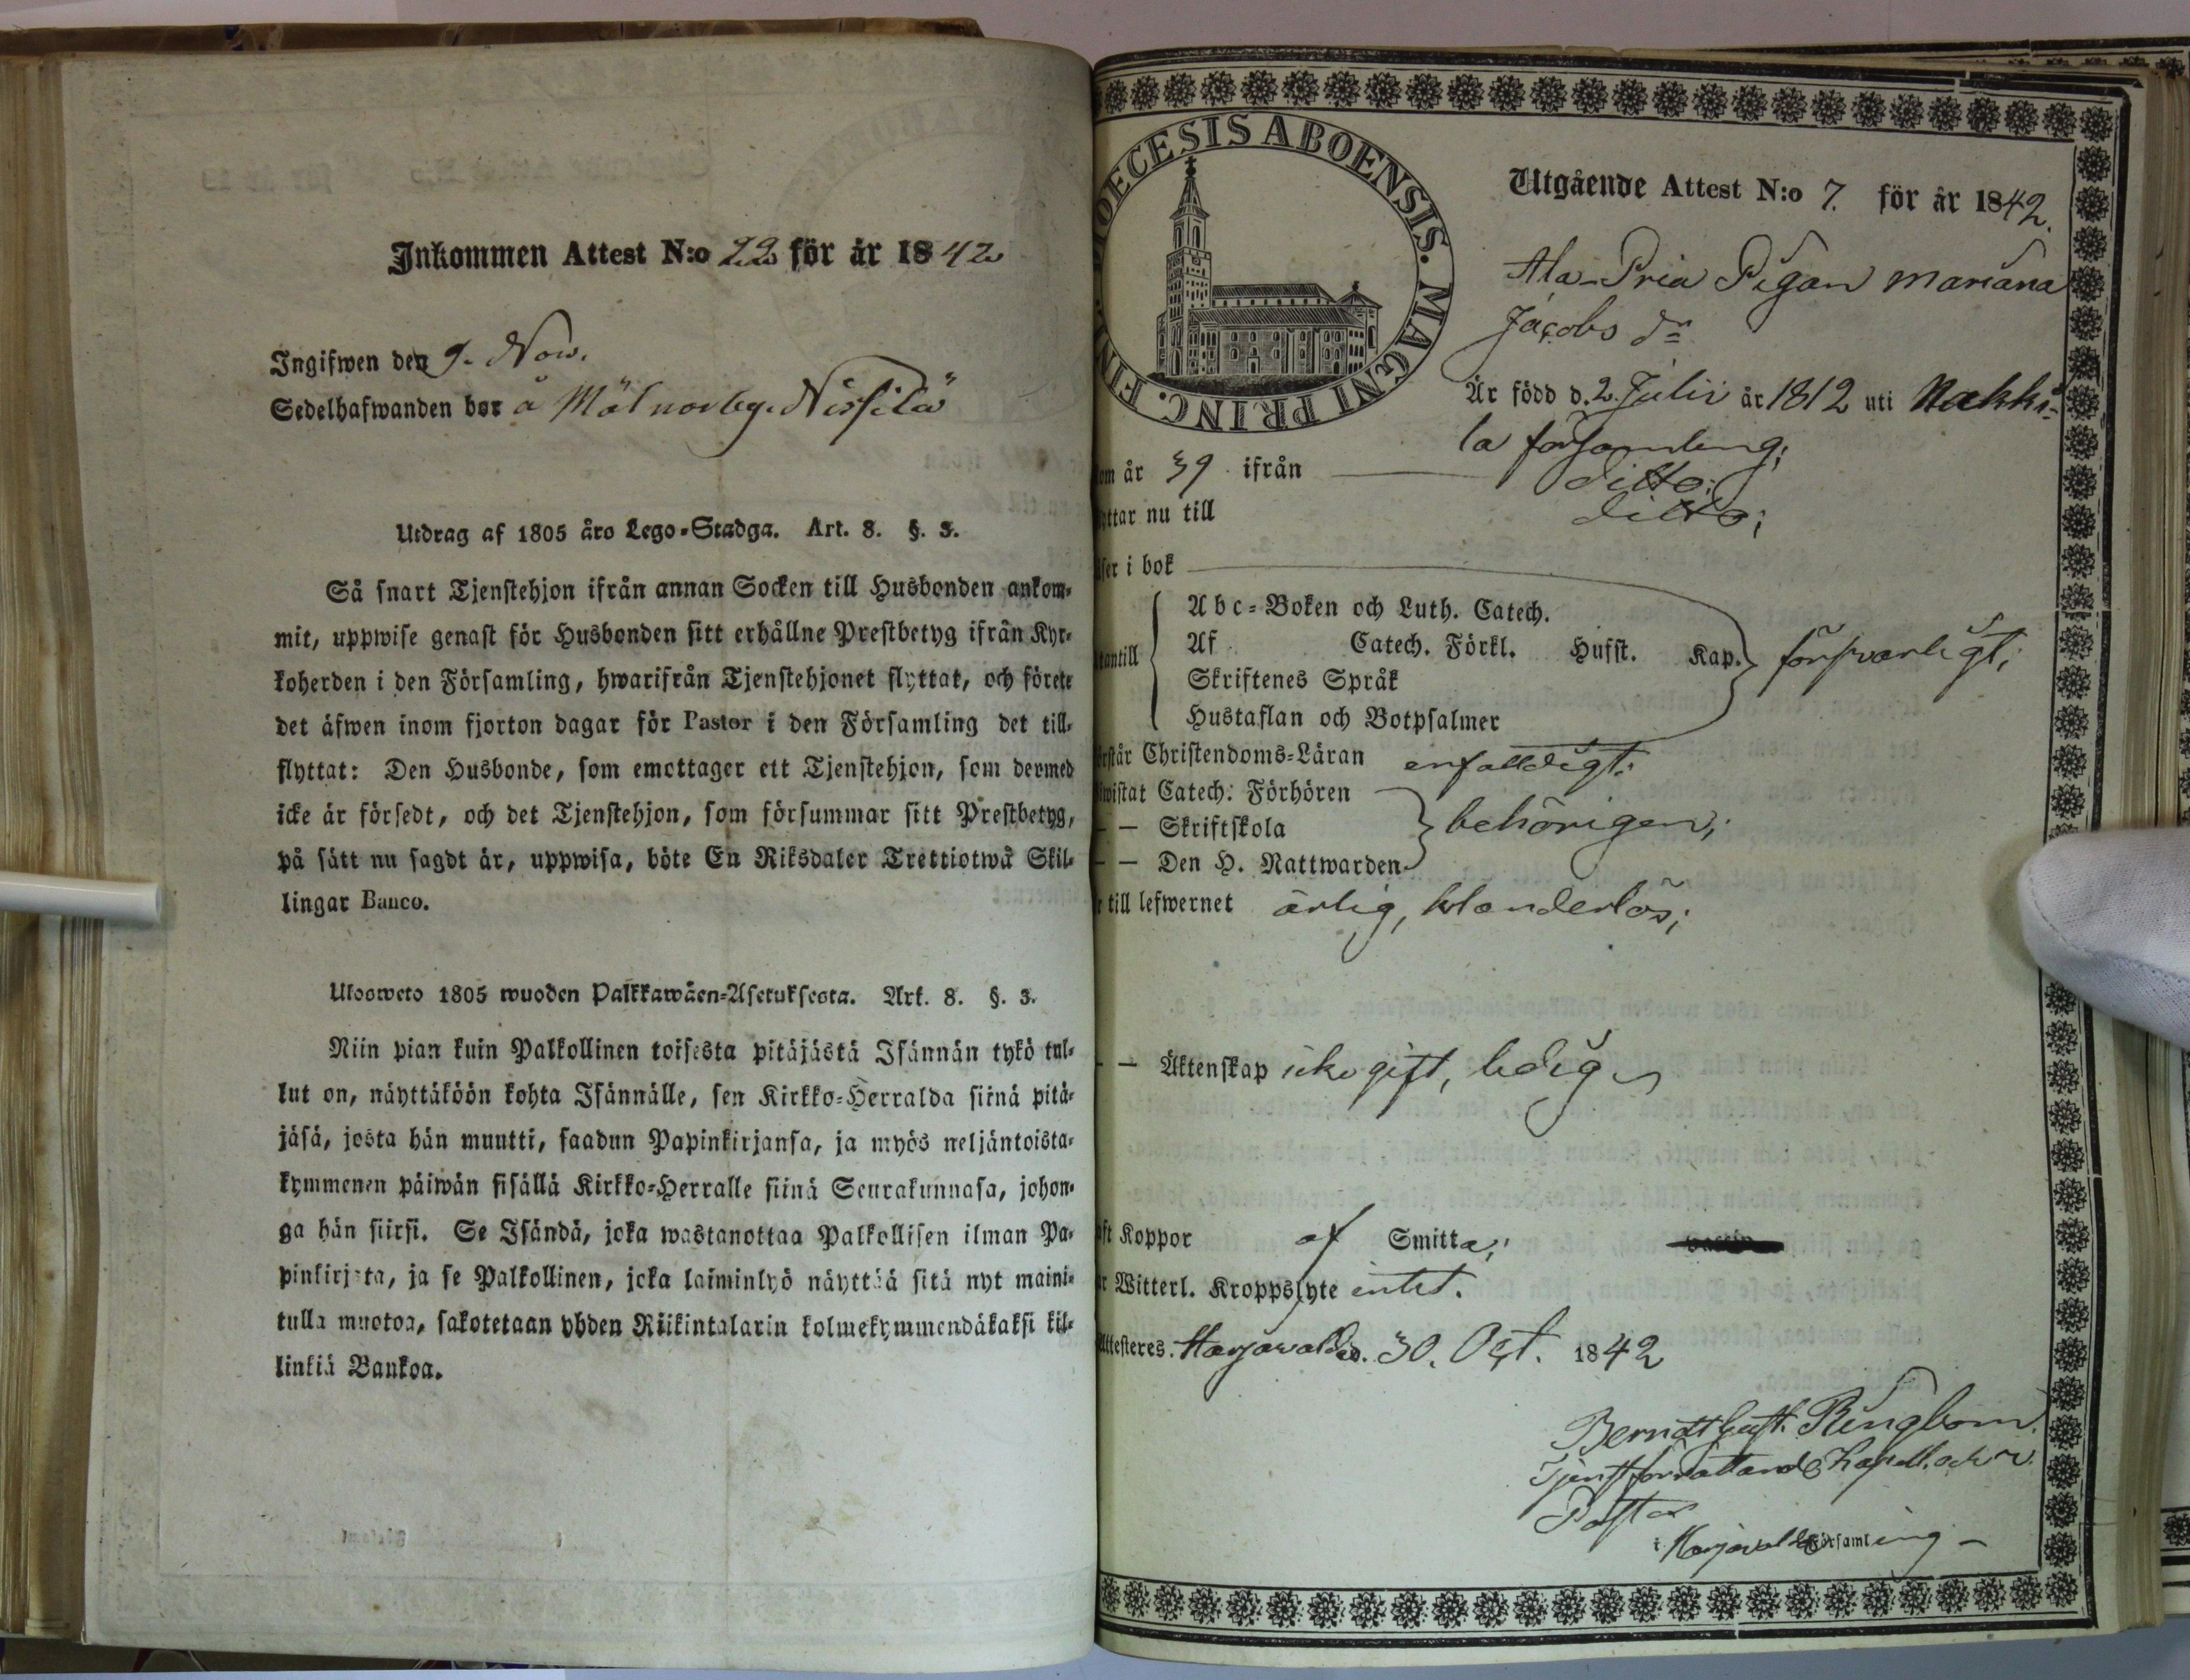 Inkommen Attest N:o 22 för år 1842
Ingifwen den 9. Nov.
Sedelhafwanden bor å Mälnorby Nissilä
Utdrag af 1805 års Lego-Stadga. Art. 8. §. 3.
Så snart Tjenstehjon ifrån annan Socken till Husbonden ankom-
mit, uppwise genast för Husbonden sitt erhållne Prestbetyg ifrån Kyr-
koherden i den Församling, hwarifrån Tjenstehjonet flyttat, och förete
det äfwen inom fjorton dagar för Pastor i den Församling det till-
flyttat: Den Husbonde, som emottager ett Tjenstehjon, som dermed
icke är försedt, och det Tjenstehjon, som försummar sitt Prestbetyg,
på sätt nu sagdt är, uppwisa, böte En Riksdaler Trettiotwå Skil-
lingar Banco.
Uloosweto 1805 wuoden Palkkawäen-Asetuksesta. Art. 8. §. 3.
Niin pian kuin Palkollinen toisesta pitäjästä Isännän tykö tul-
lut on, näyttäköön kohta Isännälle, sen Kirkko-Herralda siinä pitä-
jäsä, josta hän muutti, saadun Papinkirjansa, ja myös neljäntoista-
kymmenen päiwän sisällä Kirkko-Herralle siinä Seurakunnasa, johon-
ga hän siirsi. Se Isändä, joka wastanottaa Palkollisen ilman Pa-
pinkirjata, ja se Palkollinen, joka laiminlyö näyttää sitä nyt maini-
tulla muotoa, sakotetaan yhden Riikintalarin kolmekymmendäkaksi kil-
linkiä Bankoa.
DIOECESIS ABOENSIS. MAGNI PRINC. FIN
Utgående Attest N:o 7. för år 1842.
Ala-Pria Pigan Mariana
Jacobs dr
Är född d. 2. Julii år 1812 uti Nakki-
la församling;
om år 39 ifrån ditto;
yttar nu till ditto;
äser i bok
Abc-Boken och Luth. Catech.
tantill Af Catech. Förkl. Husst. Kap. försvarligt;
Skriftenes Språk
Hustaflan och Botpsalmer
örstår Christendoms-Läran enfalldigt;
iwistat Catech. Förhören
— Skriftskola behörigen;
— Den H. Nattwarden
r till lefwernet ärlig, klanderlös;
— Äktenskap icke gift, ledig
aft Koppor af Smitta;
r Witterl. Kroppslyte intet.
Attesteres. Harjavalda. 30. Oct. 1842
Berndt Gust. Ringbom.
Tjenstförrättande Kapell. och v.
Pastor
i Harjavalda Församling